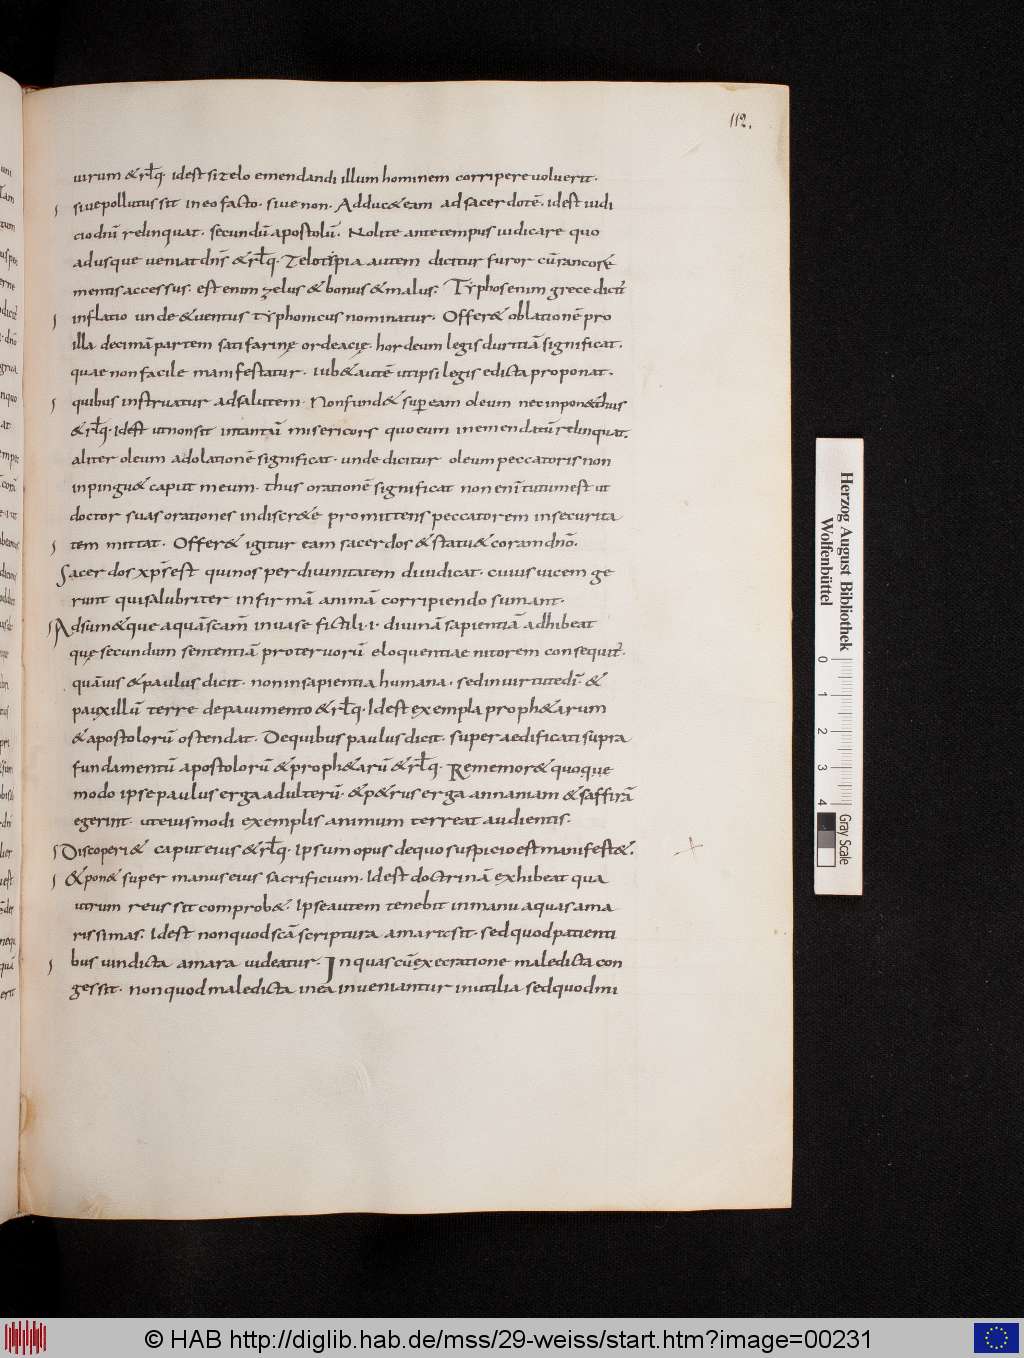 112.
uirum &rłq. idest si zelo emendandi illum hominem corripere uoluerit.
siue pollutus sit in eo facto. siue non. Adduc&eam ad sacerdotē. idest iudi
cio dn̄i relinquat. secundū apostolū. Nolite ante tempus iudicare quo
adusque ueniat dn̄s &rłq. Zelotipia autem dicitur furor cū rancore
mentis accessus. est enim zelus & bonus & malus. Typhos enim grece dicit̄
inflatio unde & uentus typhonicus nominatur. Offer& oblationē pro
illa decimā partem sati farinę ordeacię. hordeum legis duritiā significat.
quae non facile manifestatur. iub& autē ut ipsi legis edicta proponat.
quibus instruatur ad salutem. Non fund& sup eam oleum nec inpon& thus
&rłq. idest ut non sit in tantū misericors quo eum in emendatū relinquat.
aliter oleum adolationē significat. unde dicitur oleum peccatoris non
inpingu& caput meum. thus orationē significat non enī tutum est ut
doctor suas orationes indiscr&e promittens peccatorem in securita
tem mittat. Offer& igitur eam sacerdos & statu& coram dnō.
Sacerdos xp̄s est qui nos per diuinitatem diiudicat. cuius uicem ge
runt qui salubriter infirmā animā corripiendo sumant.
Adsum&que aquā scam̄ in uase fictili .i. diuinā sapientiā adhibeat
quę secundum sententiā proteruorū eloquentiae nitorem consequit̄.
quāuis & paulus dicit. non in sapientia humana. sed in uirtute dī. &
pauxillū terre de pauimento &rłq. Idest exempla proph&arum
& apostolorū ostendat. De quibus paulus dicit. super aedificati supra
fundamentū apostolorū & proph&arū &rłq. Rememor& quoque
modo ipse paulus erga adulterū. & p&rus erga annaniam & saffirā
egerint. ut eiusmodi exemplis animum terreat audientis.
Discoperi& caput eius &rłq. ipsum opus de quo suspicio est manifest&.
& pon& super manus eius sacrificium. Idest doctrinā exhibeat qua
utrum reus sit comprob&. Ipse autem tenebit in manu aquas ama
rissimas. Idest non quod scā scriptura amara sit. sed quod patienti
bus uindicta amara uideatur. In quas cū execratione maledicta con
gessit. non quod maledicta in ea inueniantur inutilia sed quod mi
Herzog August Bibliothek
Wolfenbüttel
0 1 2 3 4
Gray Scale
© HAB http://diglib.hab.de/mss/29-weiss/start.htm?image=00231